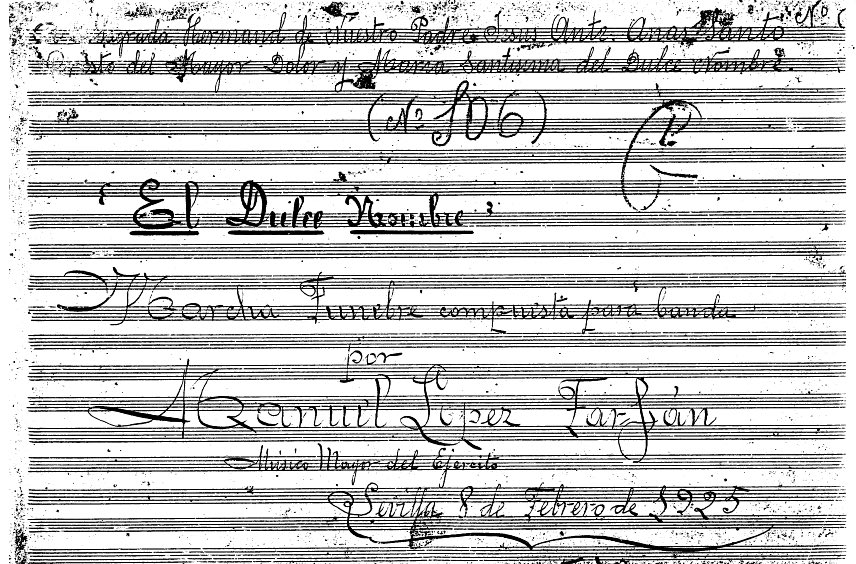 Nº
Sagrada Hermand de Nuestro Padre Jesus Ante Anas Santo
Cristo del Mayor Dolor y Maria Santisima del Dulce Nombre.
(Nº 106)
"El Dulce Nombre"
Marcha Funebre compuesta para banda
por
Manuel López Farfán
Músico Mayor del Ejercito
Sevilla 8 de Febrero de 1925